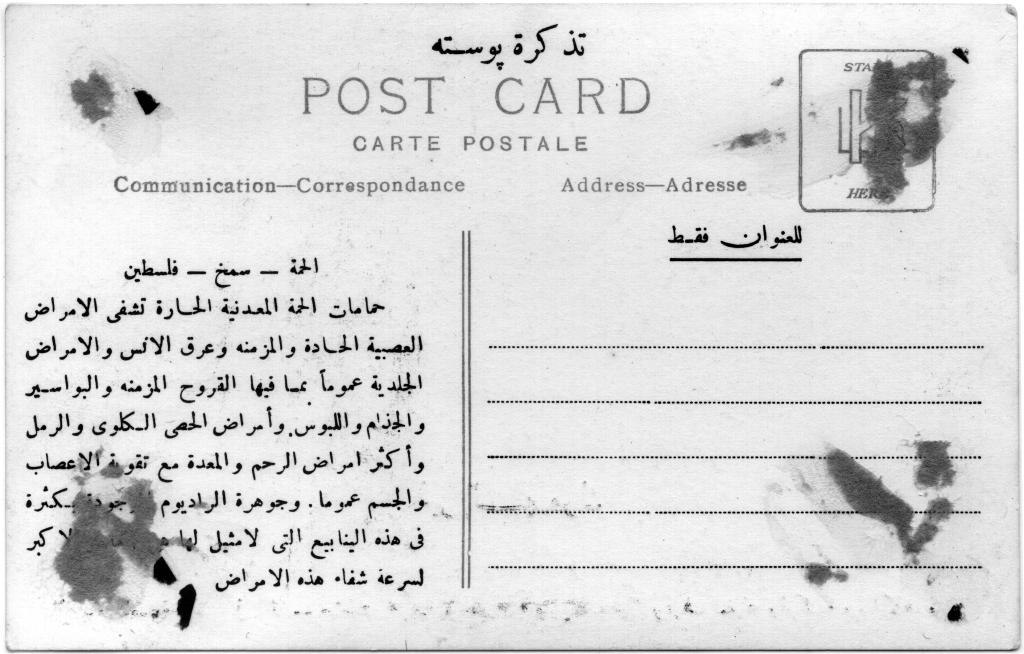 تذكرة پوسته
POST CARD
CARTE POSTALE
Communication—Correspondance
Address—Adresse
STA
HERE
للعنوان فقط
الحمة — سمخ — فلسطين
حمامات الحمة المعدنية الحارة تشفى الامراض
العصبية الحادة والمزمنه وعرق الانس والامراض
الجلدية عموماً بما فيها القروح المزمنه والبواسير
والجذام واللبوس. وأمراض الحصى الكلوى والرمل
وأكثر امراض الرحم والمعدة مع تقوية الاعصاب
والجسم عموما. وجوهرة الراديوم بكثرة
فى هذه الينابيع التى لامثيل لها
لسرعة شفاء هذه الامراض